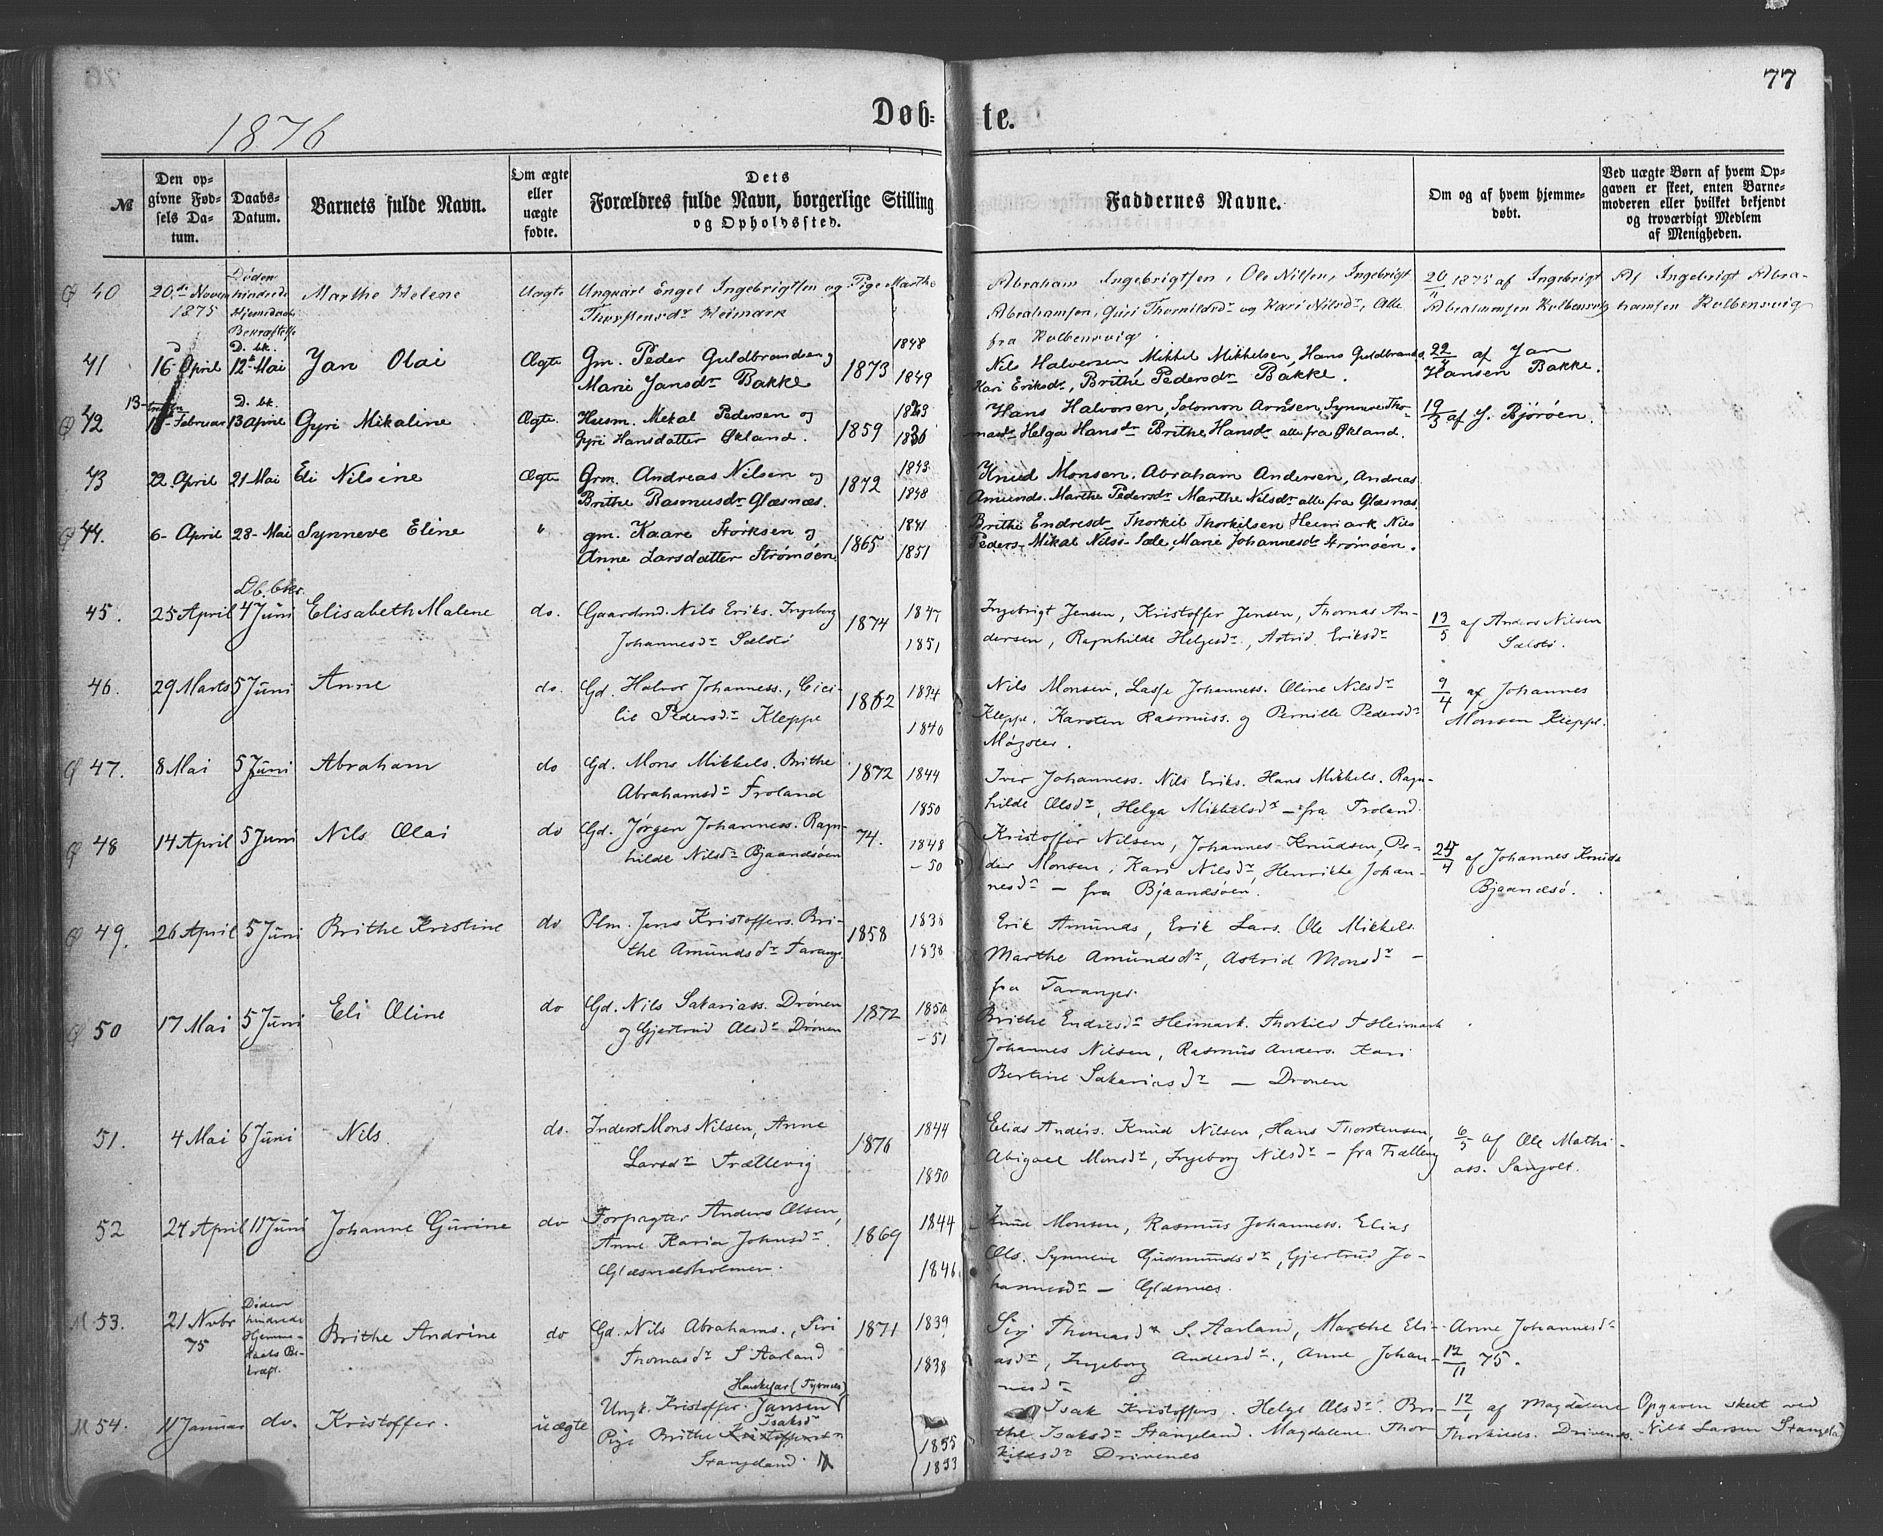 77
1876
Døb-
te.
№
Den op-
givne Fød-
sels Da-
tum.
Daabs-
Datum.
Barnets fulde Navn.
Om ægte
eller
uægte
fødte.
Dets
Forældres fulde Navn, borgerlige Stilling
og Opholdssted.
Faddernes Navne.
Om og af hvem hjemme-
døbt.
Ved uægte Børn af hvem Op-
gaven er skeet, enten Barne-
moderen eller hvilket bekjendt
og troværdigt Medlem
af Menigheden.
40
20de Novem
1875
Døden
hindrede
Hjemmedaabs
Bekræftelse
Marthe Helene
Uægte
Ungkarl Engel Ingebrigtsen og Pige Marthe
Heimark
Abraham Ingebrigtsen, Ole Nilsen, Ingebrigt
Abrahamsen, Guri og Kari Nilsdr, Alle
fra Kolbensvig
20/11 1875 af Ingebrigt
Abrahamsen Kolbensvig
Af Ingebrigt Abra-
hamsen Kolbensvig
41
16 April
D. bk.
12te Mai
Jan Olai
Ægte
Gm. Peder Guldbrandsen og
Marie Jansdr Bakke
1873
1848
1849
Nils Halvorsen, Mikkel Mikkelsen, Hans Guldbrands.
Kari Eriksdr, Brithe Pedersdr Bakke.
22/4 af Jan
Hansen Bakke.
42
13-
Februar
D. bk.
13 April
Gyri Mikaline
Ægte
Husm. Mikal Pedersen og
Gyri Hansdatter Økland.
1859
Hans Halvorsen, Solomon Arnesen, Synneve Tho-
masdr Helga Hansdr Brithe Hansdr alle fra Økland.
19/3 af J. Bjørøen.
43
22 April
21 Mai
Eli Nilsine
Ægte
Grm. Andreas Nilsen og
Brithe Rasmusdr Glæsnæs.
1872
1843
1848
Knud Monsen, Abraham Andersen, Andreas
Amunds. Marthe Pedersdr Marthe Nilsdr alle fra Glæsnæs.
44.
6- April
28- Mai
Synneve Eline
"
gm. Kaare Størksen og
Anne Larsdatter Strømøen
1865
1841
1851
Brithe Endresdr Thorkil Thorkilsen Heimark Nils
Peders- Mikal Nils- Sæle, Marie Johannesdr Strømøen.
45.
25 April
Db. bks.
4 Juni
Elisabeth Malene
do.
Gaardmd. Nils Eriks. Ingeborg
Johannesdr Sælstø
1874
1847
1851
Ingebrigt Jensen, Kristoffer Jensen, Thomas An-
dersen, Ragnhilde Helgesdr, Astrid Eriksdr
13/5 af Anders Nilsen
Sælstø.
46.
29 Marts
5 Juni
Anne
do.
Gd. Halvor Johanness., Cici-
lie Pedersdr Kleppe
1862
1834
1840
Nils Monsen, Lasse Johanness. Oline Nilsdr
Kleppe, Karsten Rasmuss. og Pernille Pedersdr
Møgster.
9/4 af Johannes
Monsen Kleppe.
47.
8 Mai
5 Juni
Abraham
do
Gd. Mons Mikkels. Brithe
Abrahamsdr Froland
1872
1844
1850
Iver Johanness. Nils Eriks. Hans Mikkels. Ragn-
hilde Olsdr, Helga Mikkelsdr – fra Froland.
48
14 April
5 Juni
Nils Olai
do
Gd. Jørgen Johanness. Ragn-
hilde Nilsdr Bjaandsøen
74.
1848
– 50
Kristoffer Nilsen, Johannes Knudsen, Pe-
der Monsen, Kari Nilsdr, Henrikke Johan-
nesdr – fra Bjaandsøen.
24/4 af Johannes Knuds
Bjaandsø.
49.
26 April
5 Juni
Brithe Kristine
do
Plm. Jens Kristoffers. Bri-
the Amundsdr Taranger
1858
1838
1838
Erik Amunds, Erik Lars. Ole Mikkels.
Marthe Amundsdr, Astrid Monsdr –
fra Taranger.
50
17 Mai
5 Juni
Eli Oline
do
Gd. Nils Sakariass. Drønen
og Gjertrud Olsdr Drønen
1872
1850
– 51
Brithe Endresdr Heimark. Thorkild T Heimark
Johannes Nilsen, Rasmus Anders. Kari
Bertine Sakariasdr – Drønen
51.
4 Mai
6 Juni
Nils.
do.
Inderst Mons Nilsen, Anne
Larsdr Trællevig
1876
1844
1850
Elias Anders. Knud Nilsen, Hans Thorstensen,
Abigael Monsdr, Ingeborg Nilsdr – fra Trællevg
6/5 af Ole Mathi-
ass. Sangolt.
52
24 April
11 Juni
Johanne Gurine
do
Forpagter Anders Olsen,
Anne Karia Johnsdr.
Glæsnesholmen.
1869
1844
1846
Knud Monsen, Rasmus Johanness. Elias
Ols. Synneve Gudmundsdr, Gjertrud Jo-
hannesdr – Glæsnes.
53.
21 Novbr
75
Døden
hindrede
Hjemme-
daabs Be-
kræft.
Brithe Andrine
do
Gd. Nils Abrahams., Siri
Thomasdr S Aarland
1871
1839
1838
Siri Thomasdr S. Aarland, Marthe Eli-
asdr, Ingeborg Andersdr., Anne Johan-
nesdr
Anne Johannesdr
12/11 75.
54.
11 Januar
do.
Kristoffer.
uægte
Haukefær (Tysnes)
Ungk. Kristoffer Jansen
Isaksdr
Pige Brithe Kristoffersdr
Stangeland
1855
1853
Isak Kristoffers. Helge Olsdr. Bri-
the Isaksdr Stangeland. Magdalene Thor-
kildsdr Drivenes
12/1 af Magdalene
Thorkilds. Drivenes.
Opgaven skeet ved
Nils Larsen Stangela